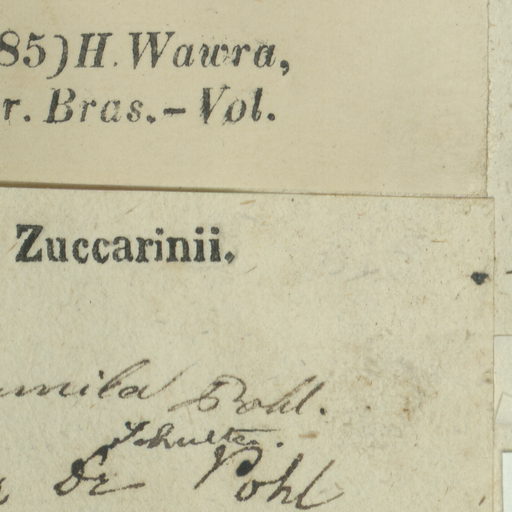 85) H. Wawra,
r. Bras. – Vol.
Zuccarinii.
umila Pohl.
Schultes.
Dr Pohl